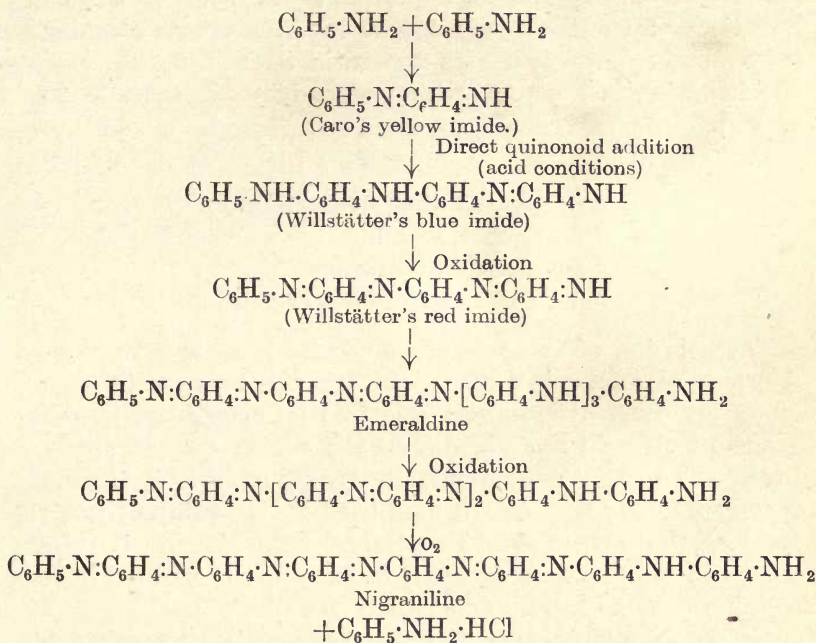 C₆H₅·NH₂+C₆H₅·NH₂
C₆H₅·N:C₆H₄:NH
(Caro's yellow imide.)
Direct quinonoid addition
(acid conditions)
C₆H₅·NH.C₆H₄·NH·C₆H₄·N:C₆H₄·NH
(Willstätter's blue imide)
Oxidation
C₆H₅·N:C₆H₄:N·C₆H₄·N:C₆H₄:NH
(Willstätter's red imide)
C₆H₅·N:C₆H₄:N·C₆H₄·N:C₆H₄:N·[C₆H₄·NH]₃·C₆H₄·NH₂
Emeraldine
Oxidation
C₆H₅·N:C₆H₄:N·[C₆H₄·N:C₆H₄:N]₂·C₆H₄·NH·C₆H₄·NH₂
O₂
C₆H₅·N:C₆H₄:N·C₆H₄·N:C₆H₄:N·C₆H₄·N:C₆H₄:N·C₆H₄·NH·C₆H₄·NH₂
Nigraniline
+C₆H₅·NH₂·HCl